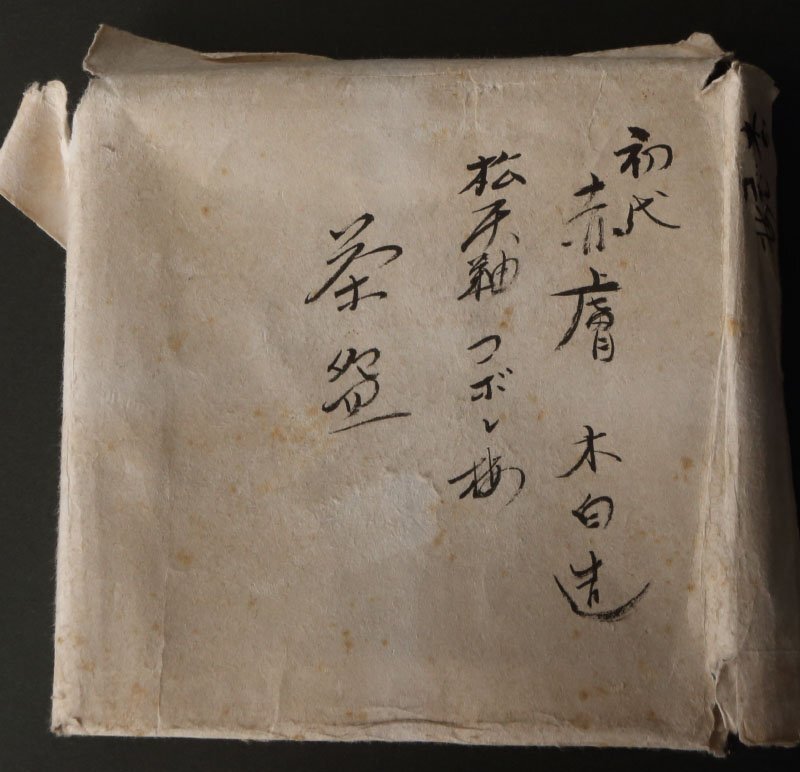 初代
赤膚 木白造
松灰釉 コボレ梅
茶盌